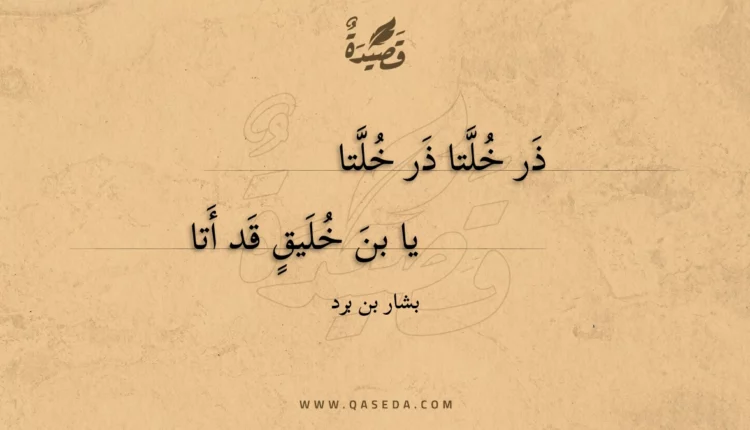 قَصِيدَةٌ
ذَر خُلَّتا ذَر خُلَّتا
يا بنَ خُلَيقٍ قَد أَتا
بشار بن برد
WWW.QASEDA.COM